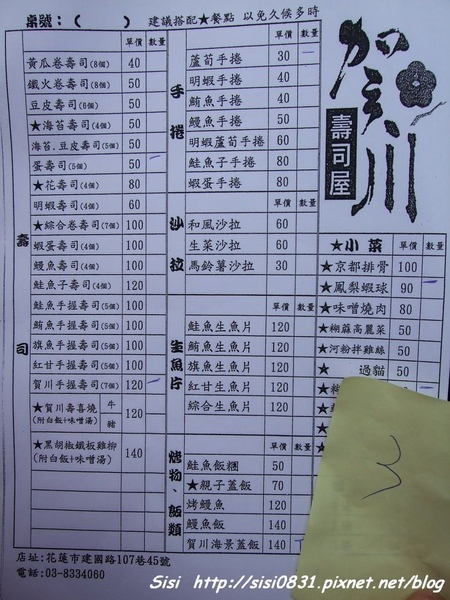 桌號：（　　）　建議搭配★餐點　以免久候多時
單價 數量
黃瓜卷壽司(8個) 40
鐵火卷壽司(8個) 50
豆皮壽司(6個) 50
★海苔壽司(4個) 50
海苔.豆皮壽司(5個) 50
蛋壽司(5個) 50
★花壽司(4個) 80
明蝦壽司(4個) 60
★綜合卷壽司(7個) 100
蝦蛋壽司(4個) 100
鰻魚壽司(4個) 100
鮭魚子壽司(4個) 120
鮭魚手握壽司(5個) 100
鮪魚手握壽司(5個) 100
旗魚手握壽司(5個) 100
紅甘手握壽司(5個) 100
賀川手握壽司(7個) 120
★賀川壽喜燒 牛 豬 120
(附白飯+味噌湯)
★黑胡椒鐵板雞柳 140
(附白飯+味噌湯)
壽司
單價 數量
手捲
蘆筍手捲 30
明蝦手捲 40
鮪魚手捲 40
鰻魚手捲 50
明蝦蘆筍手捲 60
鮭魚子手捲 80
蝦蛋手捲 80
沙拉
單價 數量
和風沙拉 60
生菜沙拉 60
馬鈴薯沙拉 30
生魚片
單價 數量
鮭魚生魚片 120
鮪魚生魚片 120
旗魚生魚片 120
紅甘生魚片 120
綜合生魚片 120
烤物、飯類
單價 數量
鮭魚飯糰 50
★親子蓋飯 70
烤鰻魚 120
鰻魚飯 140
賀川海景蓋飯 140
賀川
壽司屋
★小菜 單價 數量
★京都排骨 100
★鳳梨蝦球 90
★味噌燒肉 80
★胡麻高麗菜 50
★河粉拌雞絲 50
★過貓 50
3
店址:花蓮市建國路107巷45號
電話:03-8334060
Sisi http://sisi0831.pixnet.net/blog